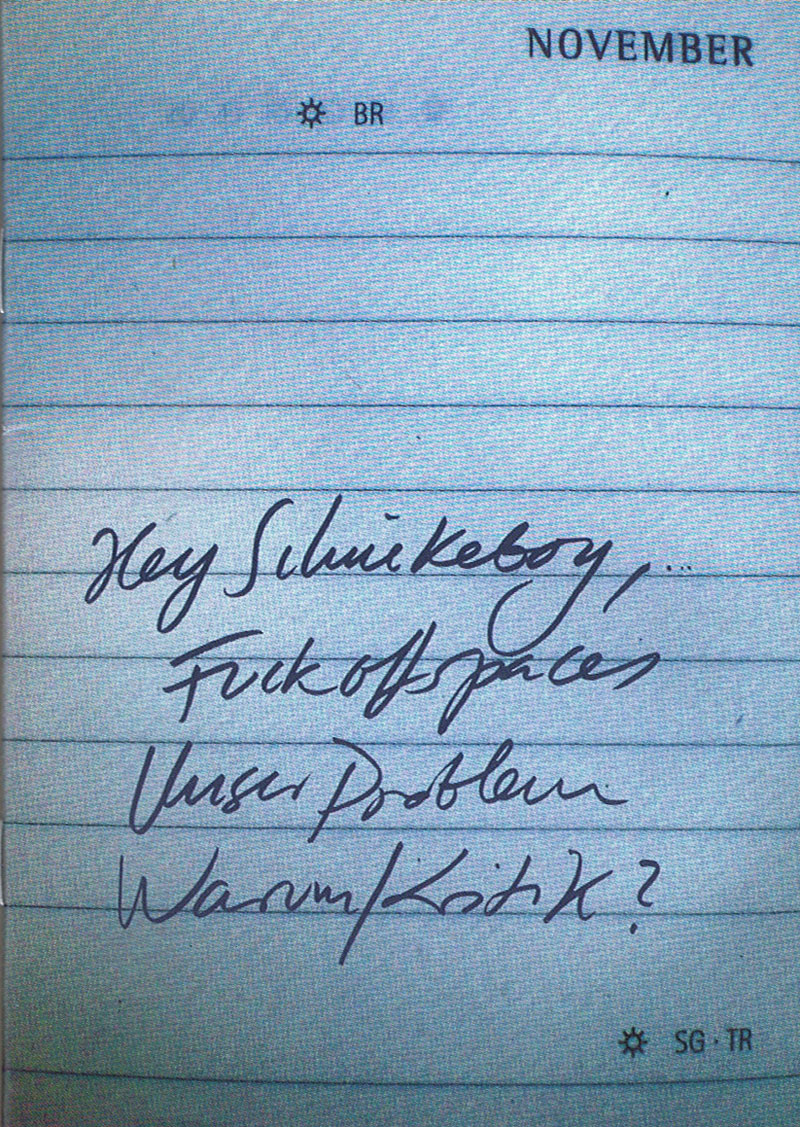 NOVEMBER
BR
Hey Schnikeboy,...
Fuck off spaces
Unser Problem
Warum/Kritik?
SG · TR